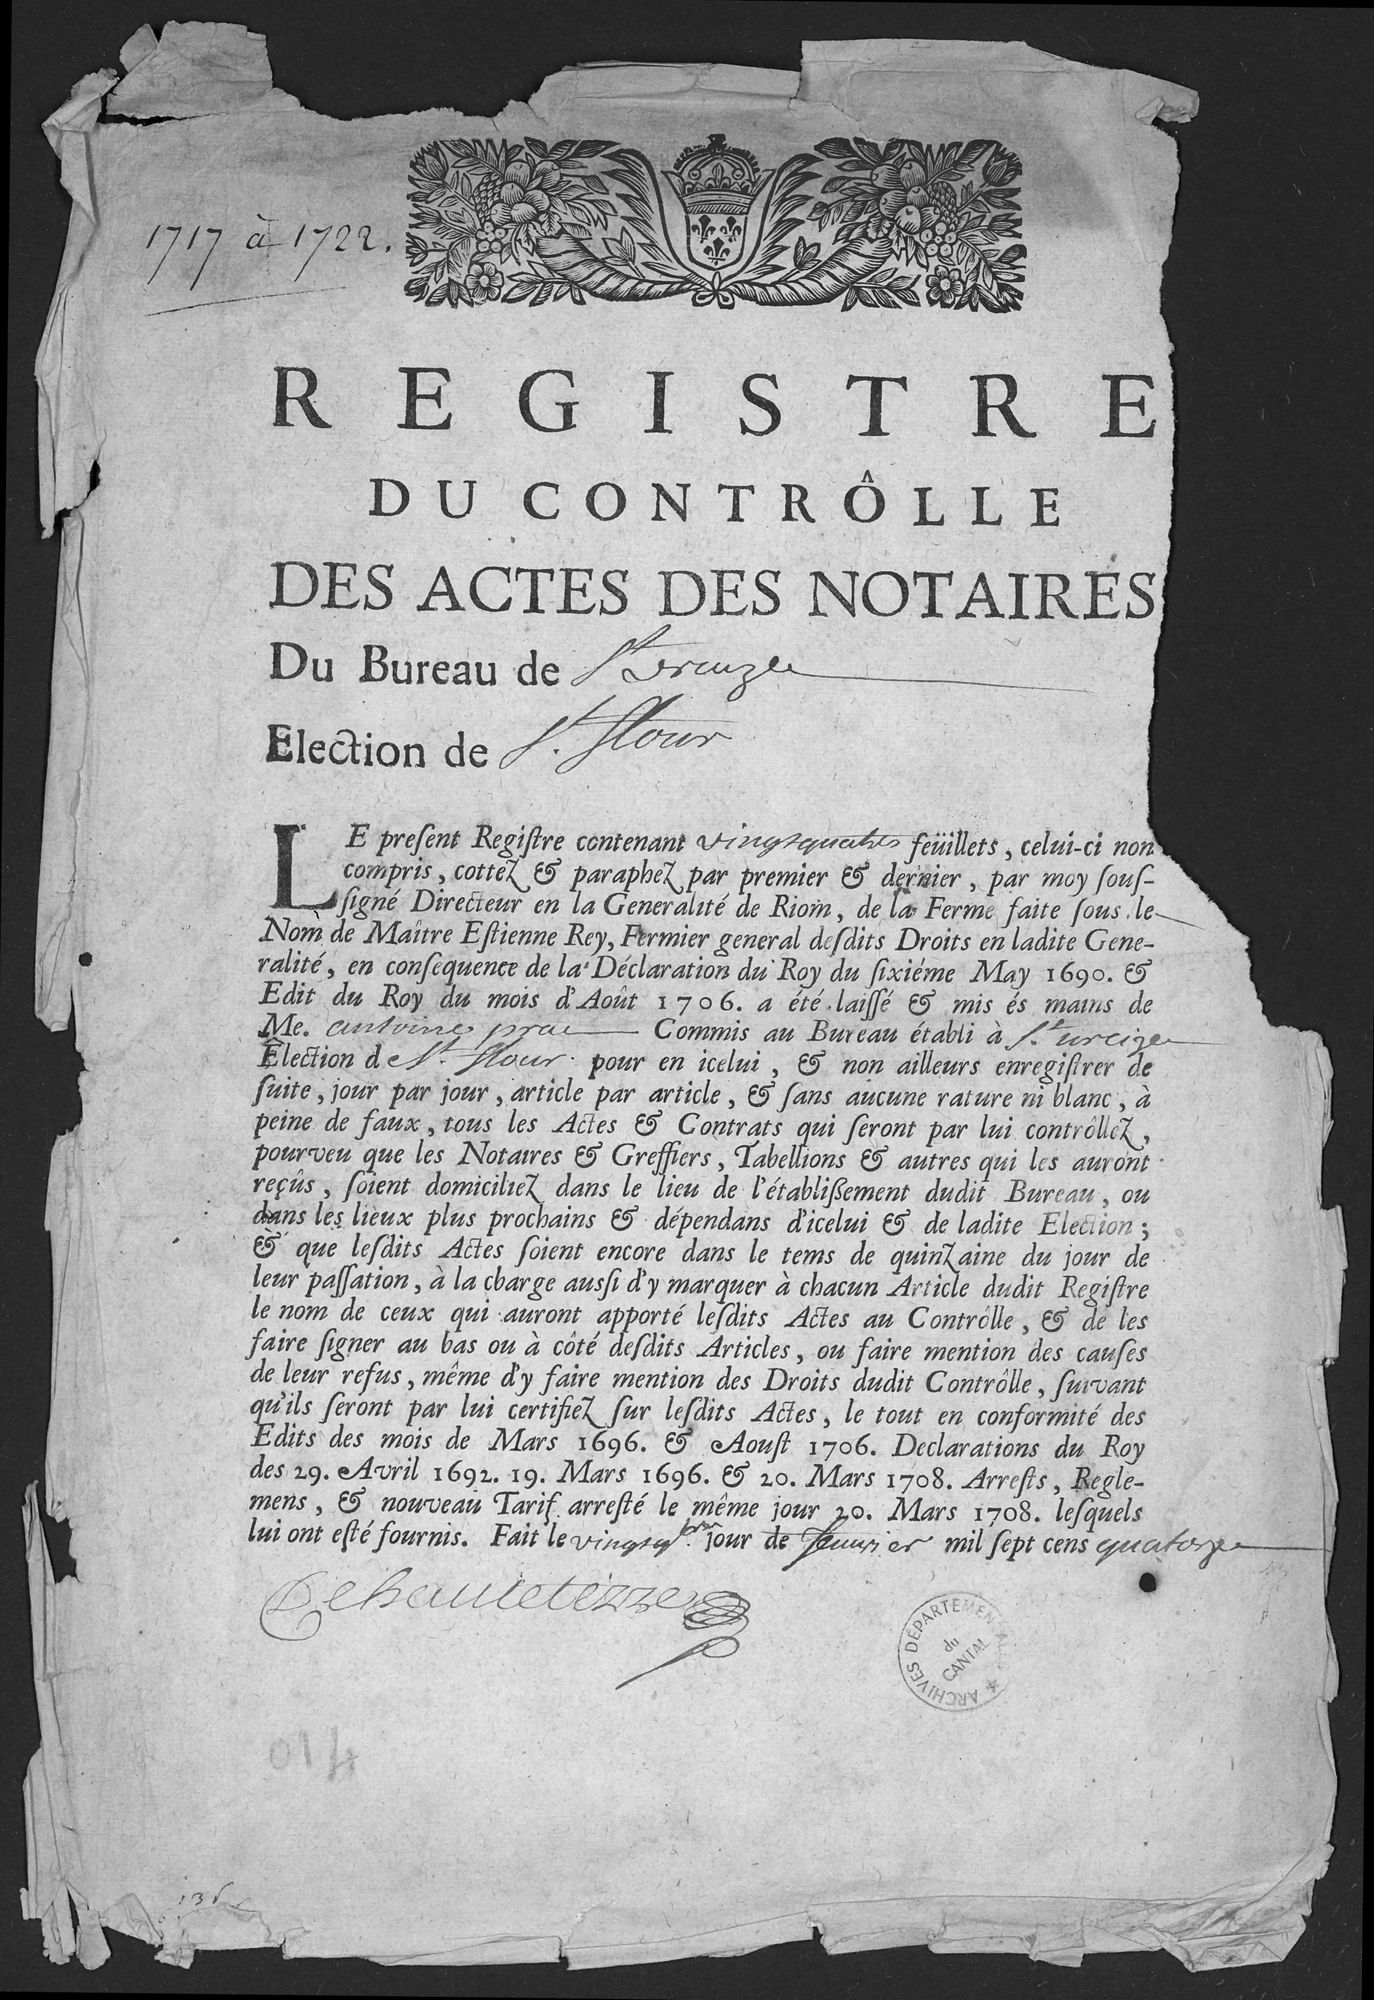 1717 à 1722.
REGISTRE
DU CONTRÔLLE
DES ACTES DES NOTAIRES
Du Bureau de St
Election de St. flour
LE preſent Regiſtre contenant vingtquatre feüillets, celui-ci non
compris, cottez & paraphez par premier & dernier, par moy ſouſ-
ſigné Directeur en la Generalité de Riom, de la Ferme faite ſous le
Nom de Maître Eſtienne Rey, Fermier general deſdits Droits en ladite Gene-
ralité, en conſequence de la Déclaration du Roy du ſixiéme May 1690. &
Edit du Roy du mois d'Août 1706. a été laiſſé & mis és mains de
Me. antoine Commis au Bureau établi à St. urcize
Election d St. flour pour en icelui, & non ailleurs enregiſtrer de
ſuite, jour par jour, article par article, & ſans aucune rature ni blanc, à
peine de faux, tous les Actes & Contrats qui ſeront par lui contrôllez,
pourveu que les Notaires & Greffiers, Tabellions & autres qui les auront
reçûs, ſoient domiciliez dans le lieu de l'établißement dudit Bureau, ou
dans les lieux plus prochains & dépendans d'icelui & de ladite Election;
& que leſdits Actes ſoient encore dans le tems de quinzaine du jour de
leur paſſation, à la charge auſſi d'y marquer à chacun Article dudit Regiſtre
le nom de ceux qui auront apporté leſdits Actes au Contrôlle, & de les
faire ſigner au bas ou à côté deſdits Articles, ou faire mention des cauſes
de leur refus, même d'y faire mention des Droits dudit Contrôlle, ſuivant
qu'ils ſeront par lui certifiez ſur leſdits Actes, le tout en conformité des
Edits des mois de Mars 1696. & Aouſt 1706. Declarations du Roy
des 29. Avril 1692. 19. Mars 1696. & 20. Mars 1708. Arreſts, Regle-
mens, & nouveau Tarif arreſté le même jour 20. Mars 1708. leſquels
lui ont eſté fournis. Fait le jour de mil ſept cens quatorze
ARCHIVES DÉPARTEMENTALES
du
CANTAL